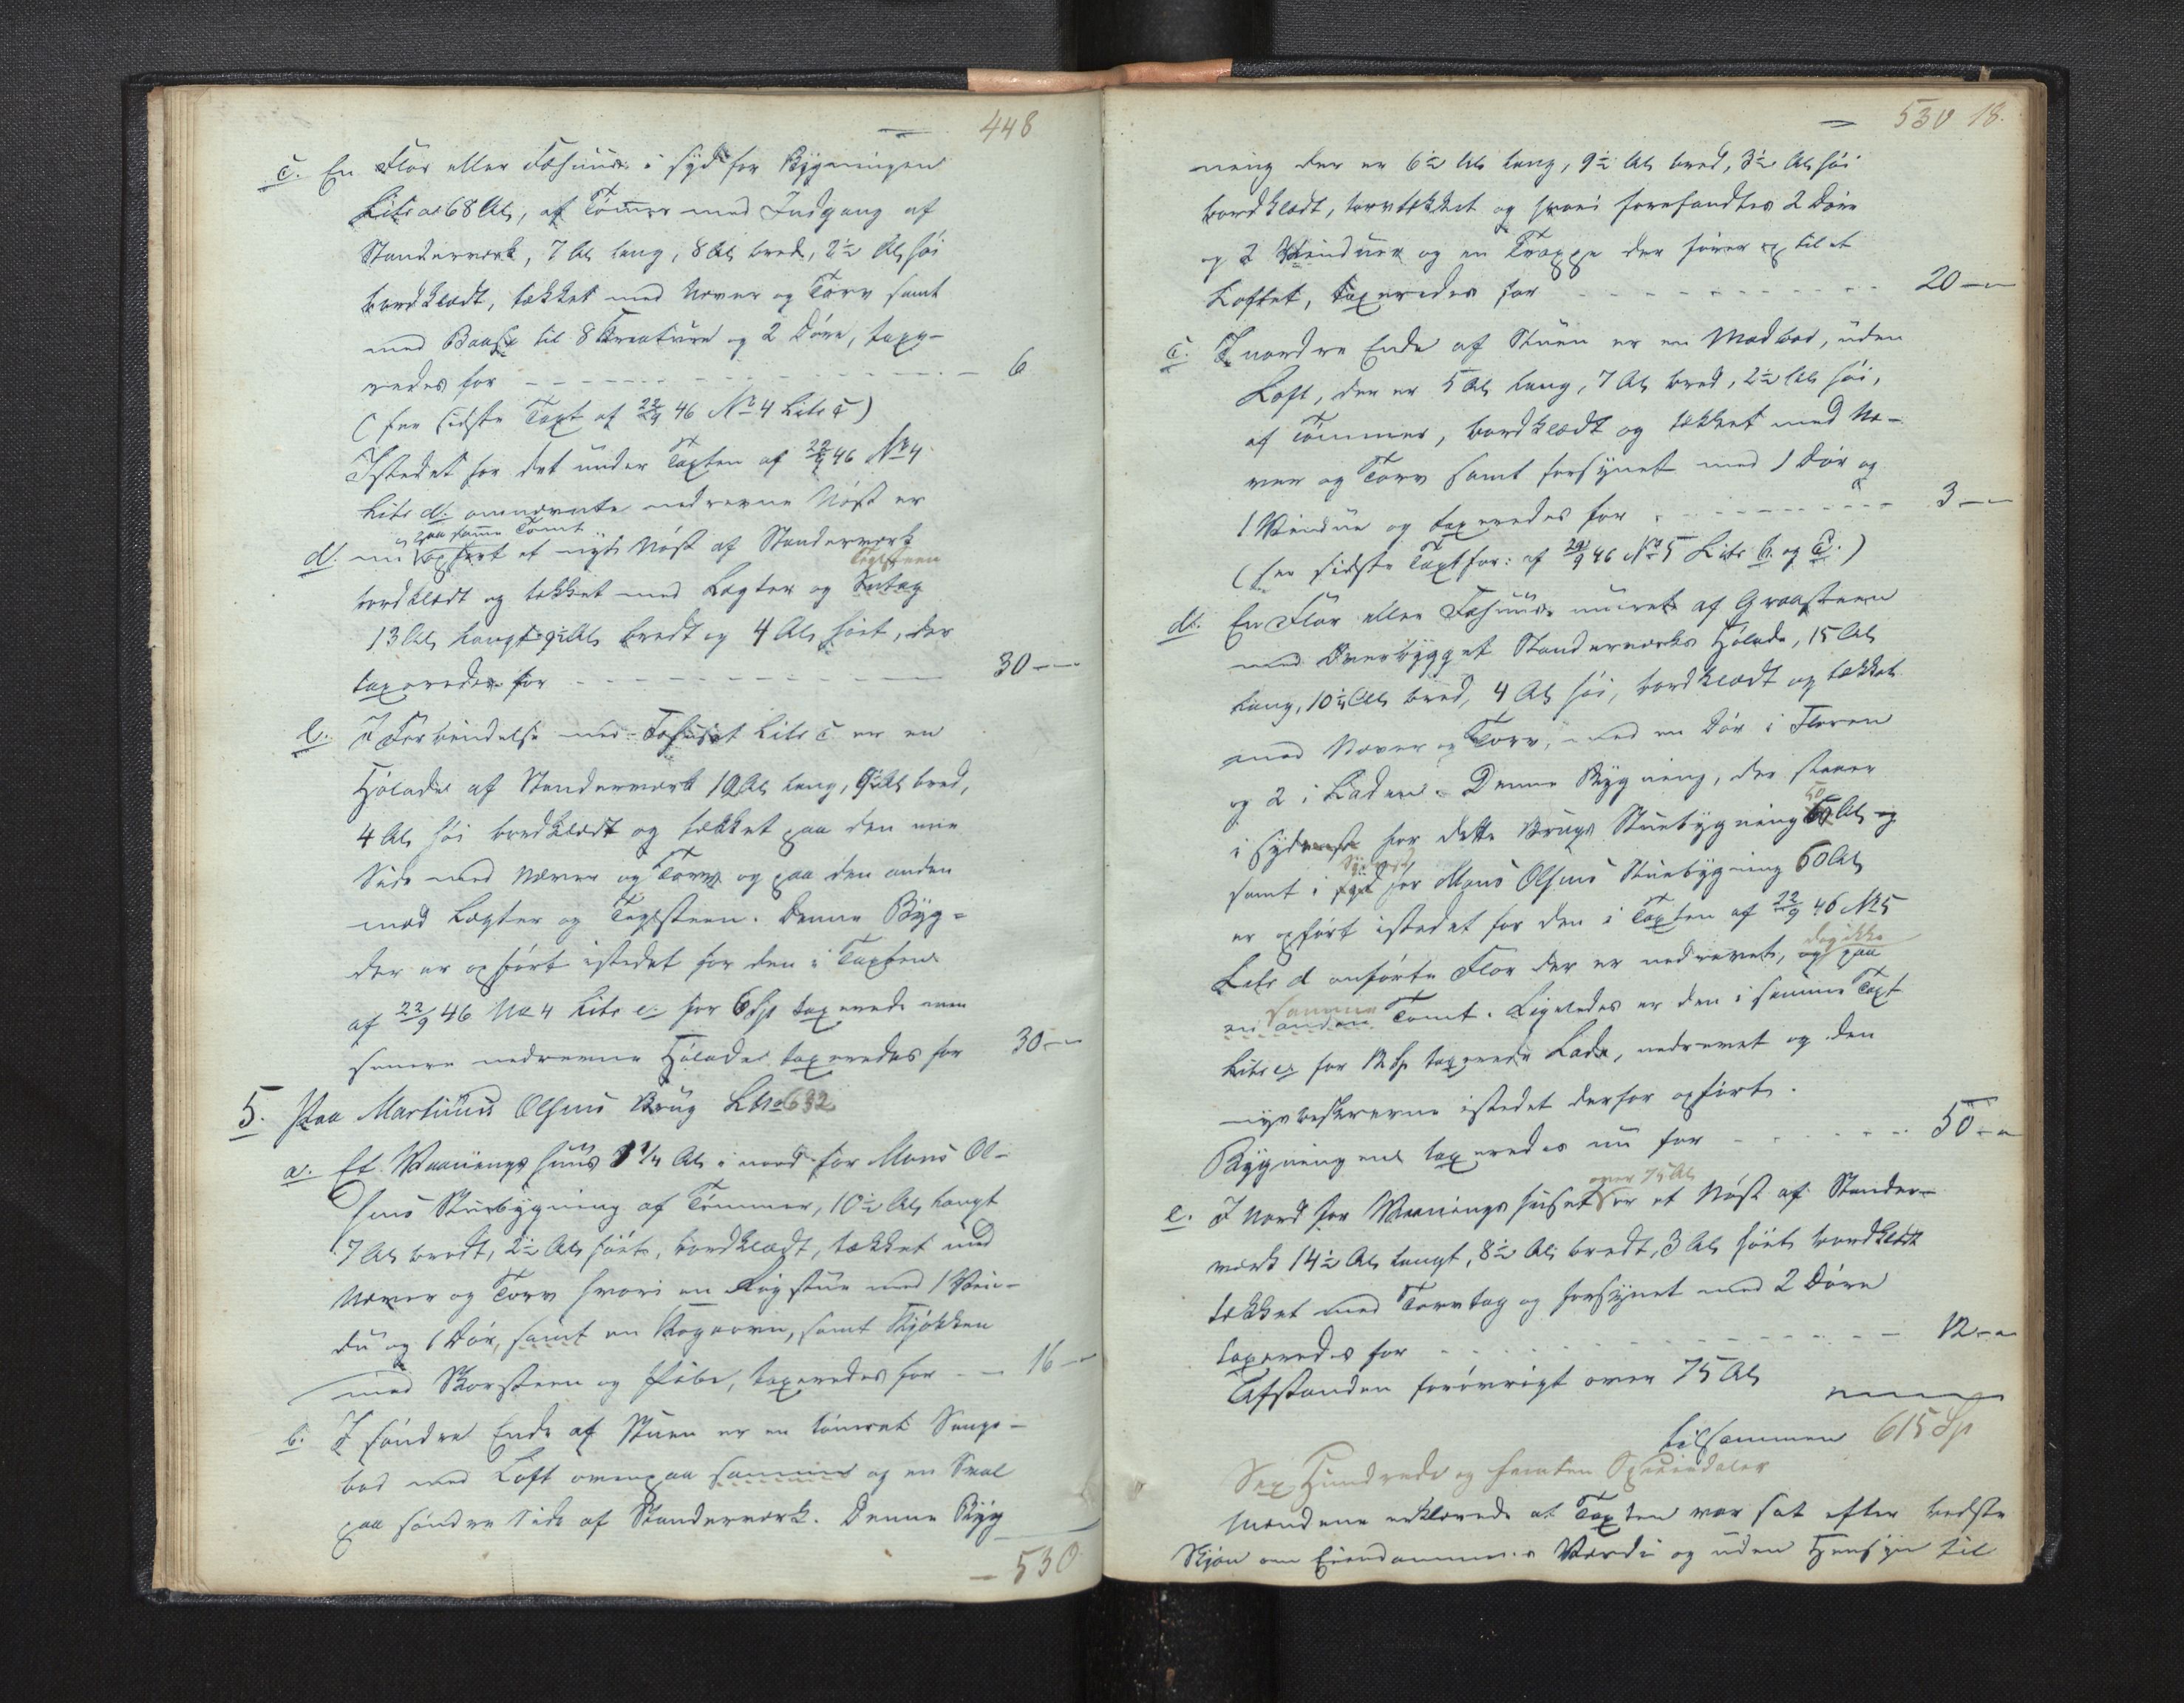 448
c. En Flor eller Fæhuus i syd for Bygningen
Litr a 68 Al, af Tømer med Indgang af
Standerværk, 7 Al lang, 8 Al bred, 2½ Al høi
bordklædt, tækket med Næver og Torv samt
med Baase til 8 Kreature og 2 Døre, taxe-
redes for - - - 6
(see sidste Taxt af 22/9 46 No 4 Litr c)
Istedet for det under Taxten af 22/9 46 No 4
Litr d. omnævnte nedrevne Nøst er
paa same Tomt
d. nu opført et nyt Nøst af Standerværk
Teglsteen
bordklædt og tækket med Lægter og
13 Al langt 9½ Al bredt og 4 Al høit, der
taxeredes for - - - 30 -
e. I Forbindelse med Fæhuset Litr c er en
Hølade af Standerværk 19 Al lang, 9½ Al bred,
4 Al høi bordklædt og tækket paa den ene
Side med Næver og Torv og paa den anden
med Lægter og Teglsteen. Denne Byg-
der er opført istedet for den i Taxten
af 22/9 46 No 4 Litr e. for 6 Sp taxerede men
senere nedrevne Hølade taxeredes for 30 -
5. Paa Martinus Olsens Brug LNo 632
a. Et Vaaningshuus 8¼ Al i nord for Mons Ol-
sens Stuebygning af Tømmer, 10½ Al langt
7 Al bredt, 2½ Al høit, bordklædt, tækket med
Næver og Torv hvori en Røgstue med 1 Vin-
du og 1 Dør, samt en Rogovn, samt Kjøkken
med Skorsteen og Pibe, taxeredes for - 16 -
b. I søndre Ende af Stuen er en tømret Senge-
bod med Loft ovenpaa samme og en Sval
paa søndre Side af Standerværk. Denne Byg
- 530
530 18.
ning der er 6½ Al lang, 9½ Al bred, 3½ Al høi
bordklædt, torvtækket og hvori forefandtes 2 Døre
og 2 Vinduer og en Trappe der fører op til et
Loftet, taxeredes for - - - 20 -
c. I nordre Ende af Stuen er en Madbod, uden
Loft, der er 5 Al lang, 7 Al bred, 2½ Al høi,
af Tømmer, bordklædt og tækket med Næ-
ver og Torv samt forsynet med 1 Dør og
1 Vindue og taxeredes for - - - 3 -
(see sidste Taxtfor: af 22/9 46 No 5 Litr b. og c.)
d. En Flor eller Fæhuus muret af Graasteen
med Overbygget Standerværks Hølade, 15 Al
lang, 10½ Al bred, 4 Al høi, bordklædt og tækket
med Næver og Torv, med en Dør i Floren
og 2 i Laden. Denne Bygning, der staaer
50
i syd for dette Brugs Stuebygning Al og
Sydvest
samt i syd for Mons Olsens Stuebygning 60 Al
er opført istedet for den i Taxten af 22/9 46 No 5
dog ikke
Litr d anførte Flor der er nedrevet, og paa
samme
en anden Tomt. Ligeledes er den i samme Taxt
Litr e. for 12 Sp taxerede Lade, nedrevet og den
nysbeskrevne istedet derfor opført.
Bygningen taxeredes nu for - - - 50 -
over 75 Al
e. I Nord for Vaaningshuset er et Nøst af Stander-
værk 14½ Al langt, 8½ Al bredt, 3 Al høit bordklædt
tækket med Torvtag og forsynet med 2 Døre
taxeredes for - - - 12 -
Afstanden forøvrigt over 75 Al
tilsammen 615 Sp
Sex Hundrede og femten Speciedaler
Mændene erklærede at Taxten var sat efter bedste
Skjøn om Eiendommens Værdi og uden Hensyn til